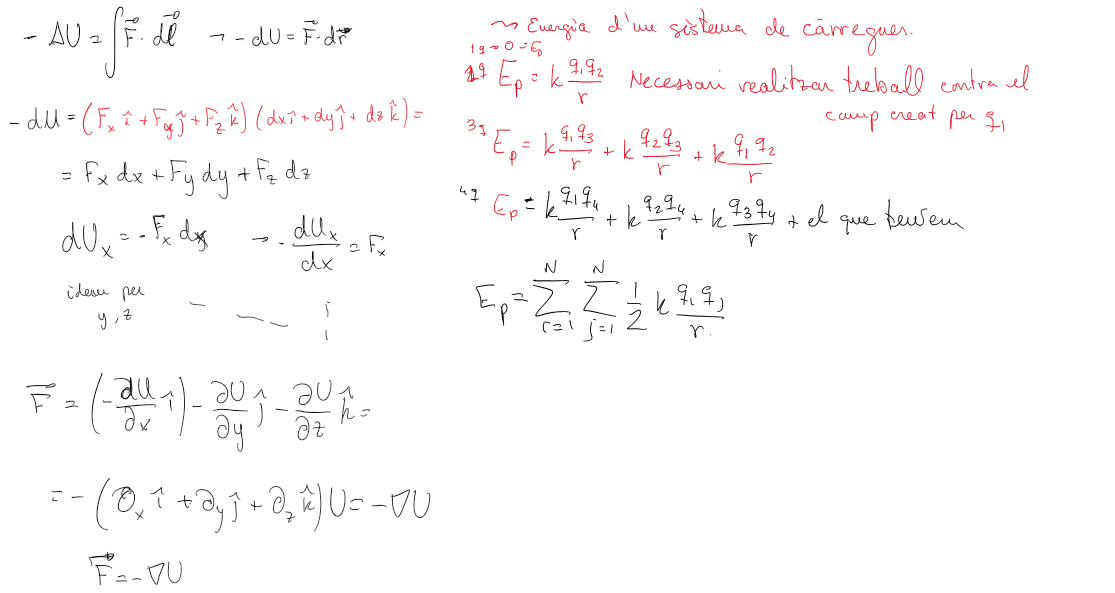 - ΔU = ∫ F⃗ · dl⃗ → - dU = F⃗ · dr⃗
- dU = (Fx î + Fy ĵ + Fz k̂) (dx î + dy ĵ + dz k̂) =
= Fx dx + Fy dy + Fz dz
dUx = - Fx dx → - dUx/dx = Fx
idem per
y, z
F⃗ = (- ∂U/∂x î) - ∂U/∂y ĵ - ∂U/∂z k̂ =
= - (∂x î + ∂y ĵ + ∂z k̂) U = - ∇U
F⃗ = - ∇U
~> Energia d'un sistema de càrregues.
1q → 0 = Ep
2q Ep = k q1q2/r Necessari realitzar treball contra el
camp creat per q1
3q Ep = k q1q3/r + k q2q3/r + k q1q2/r
4q Ep = k q1q4/r + k q2q4/r + k q3q4/r + el que teníem
Ep = Σ(i=1, N) Σ(j=1, N) 1/2 k qi qj/r